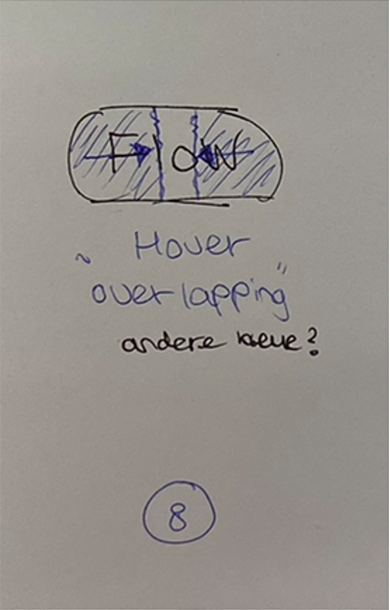 Flow
"Hover
overlapping"
andere keue?
8